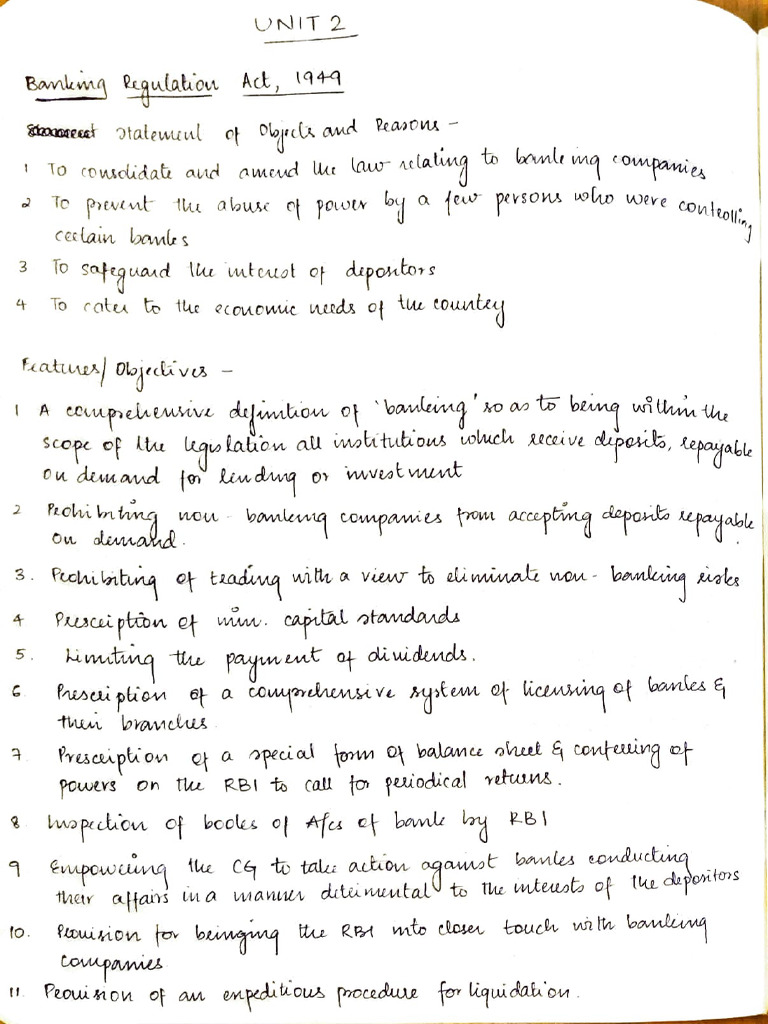 UNIT 2
Banking Regulation Act, 1949
Statement of Objects and Reasons -
1 To consolidate and amend the law relating to banking companies
2 To prevent the abuse of power by a few persons who were controlling
certain banks
3 To safeguard the interest of depositors
4 To cater to the economic needs of the country
Features/Objectives -
1 A comprehensive definition of 'banking' so as to bring within the
scope of the legislation all institutions which receive deposits, repayable
on demand for lending or investment
2 Prohibiting non-banking companies from accepting deposits repayable
on demand.
3. Prohibiting of trading with a view to eliminate non-banking risks
4 Prescription of min. capital standards
5. Limiting the payment of dividends.
6. Prescription of a comprehensive system of licensing of banks &
their branches
7 Prescription of a special form of balance sheet & conferring of
powers on the RBI to call for periodical returns.
8 Inspection of books of A/cs of bank by RBI
9 Empowering the CG to take action against banks conducting
their affairs in a manner detrimental to the interests of the depositors
10. Provision for bringing the RBI into closer touch with banking
companies
11. Provision of an expeditious procedure for liquidation.